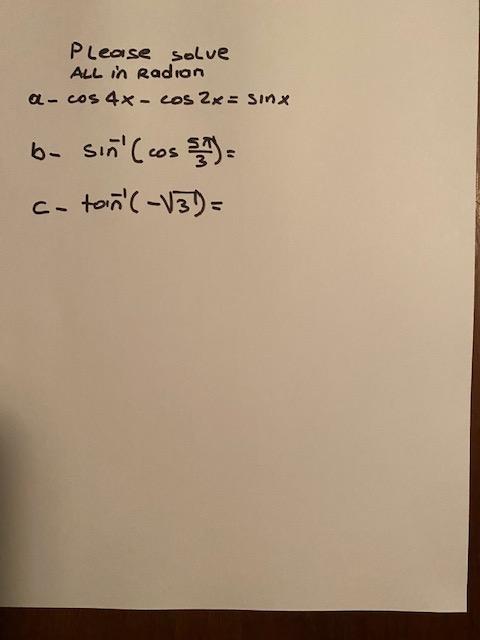 Please solve
ALL in Radian
a- cos 4x - cos 2x = sinx
b- sin⁻¹(cos 5π/3)=
c- tan⁻¹(-√3)=